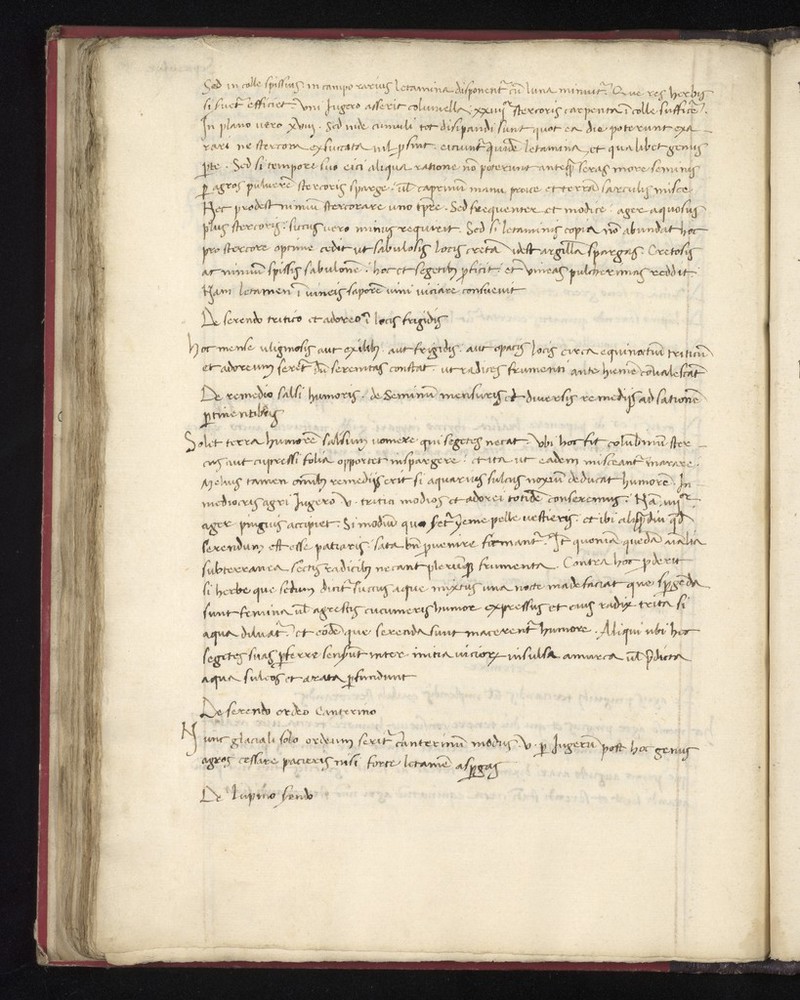 Sed in colle spissius in campo rarius letamina disponent̄ cū luna minuit̄. Que res herbis
si fuerit efficiet. Vni Jugero asserit columella xxiiij stercoris carpenta ī colle suffice͞r.
In plano vero xviij. Sed inde cumuli tot dissipandi sunt quot ea die poterunt exa
rari ne stercora exsiccata nil ꝓsint. eiciunt̄ quidē letamina et qualibet genus
ꝑte. Sed si tempore suo eici aliqua ratione nō poterunt anteq̄ seras more seminis
ꝑ agros pulverē stercoris sparge. ul̄ caprinū manu proice et terrā sarculis misce
Nec prodest nimiū stercorare uno tp̄re. Sed frequenter et modice. ager aquosus
plus stercoris. siccus vero minus requirit. Sed si letaminis copia nō abundat hoc
pro stercore optime cedit ut sabulosis locis cretā idest argillā spargas. Cretosis
ac nimiū spissis sabulonē. hoc et segetib; ꝓficit. et vineas pulcherrimas reddit
Nam letamen ī vineis saporē vini viciare consuevit
De serendo tritico et adoreo ī locis frigidis
Hoc mense uliginosis aut exilib; aut frigidis. aut opacis locis circa equinoctiū triticū
et adoreum seret̄ dū serenitas constat. ut radices frumenti ante hiemē coualescāt
De remedio salsi humoris. de Seminū mensuris et diversis remedijs ad sationē
ꝑtinentibus
Solet terra humorē salsum vomere qui segetes necat. Vbi hoc fit columbinū ster
cus aut cupressi folia opportet inspargere. et ita ut eadem misceant̄ inarare.
Melius tamen omnib; remedijs erit si aquarius sulcus noxiū deducat humorē. In
mediocris agri Jugero v. tritici modios et adorei totidē conseremus. Nā iiijor
ager pinguis accipiet. Si modiū quo seret̄ yene pelle vestieris et ibi aliq̄diu qd̄
serendum est esse patiaris sata bn̄ ꝓuenire firmant̄. It̄ quoniā quedā aīalia
subterranea sectis radicib; necant plerūq; frumenta. Contra hoc ꝓderit
si herbe que sedum dicit̄ succus aque mixtus una nocte madefaciat que spergēda
sunt semina ul̄ agrestis cucumeris humor expressus et eius radix trita si
aqua diluat̄. et eodē que serenda sunt macerent̄ humore. Aliqui ubi hoc
segetes suas ꝑferre senserunt inter initia viciorū insulsa amurca ul̄ p̄dicta
aqua sulcos et arata ꝑfundunt
De serendo ordeo Canterino
Nunc glaciali solo ordeum serit̄ canterinū modijs v. ꝑ Jugerū post hoc genus
agros cessare pacieris nisi forte letamē aspergas
De lupino serendo